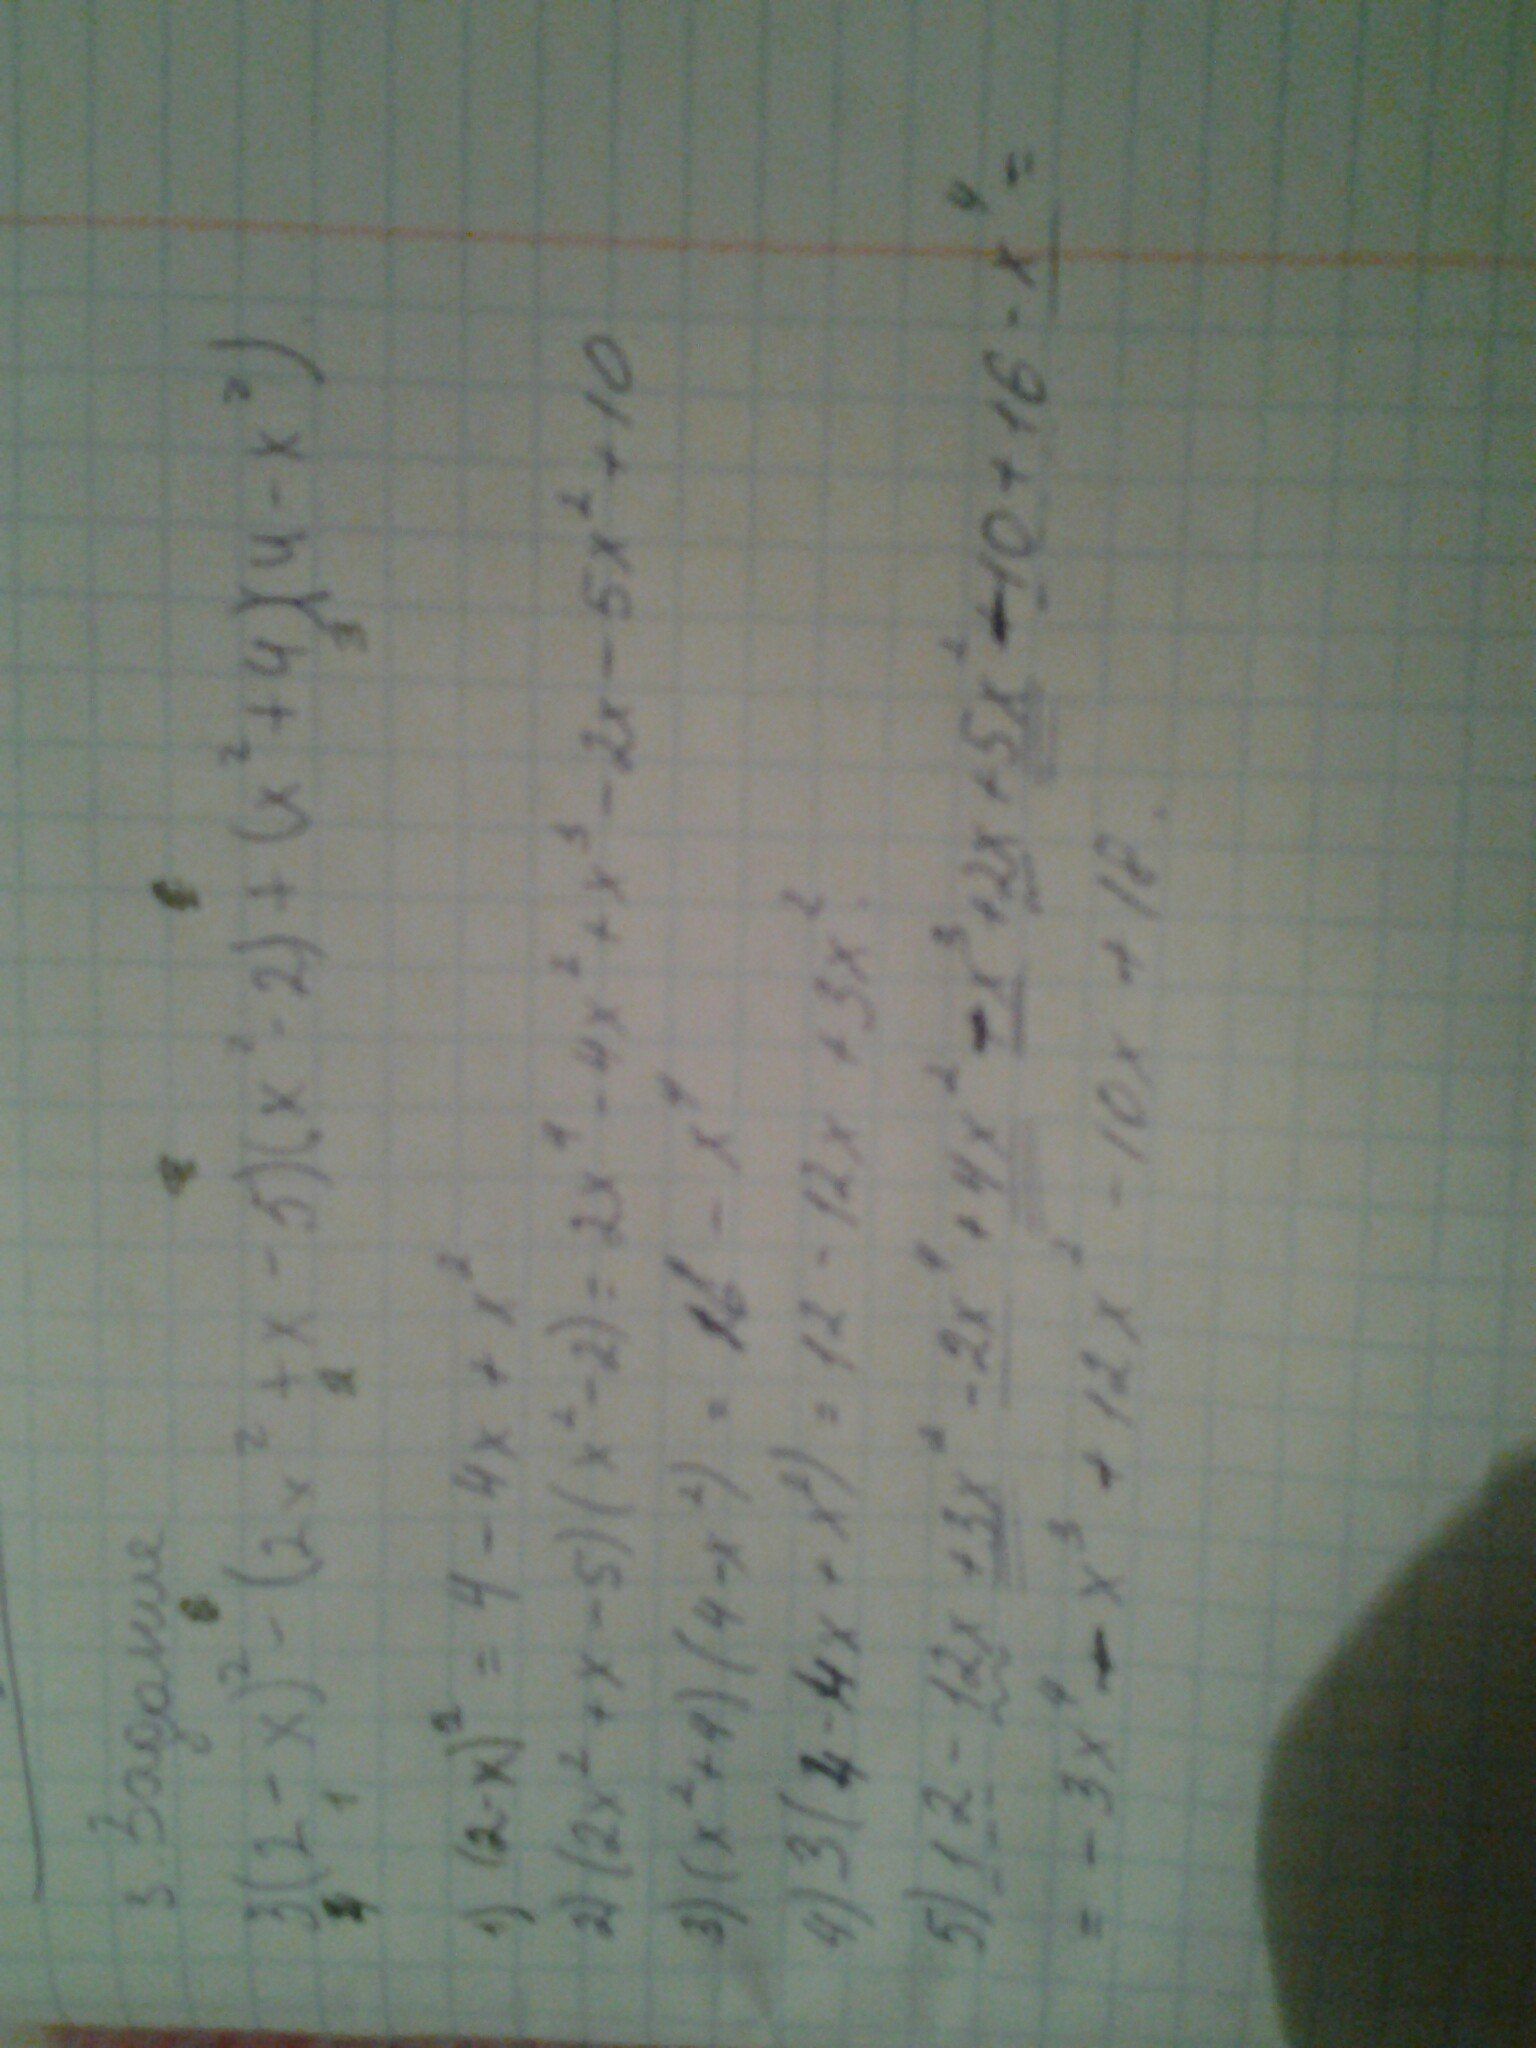 3. Задание
3(2-x)² - (2x² + x - 5)(x² - 2) + (x² + 4)(4 - x²)
1) (2-x)² = 4 - 4x + x²
2) (2x² + x - 5)(x² - 2) = 2x⁴ - 4x² + x³ - 2x - 5x² + 10
3) (x² + 4)(4 - x²) = 16 - x⁴
4) 3(4 - 4x + x²) = 12 - 12x + 3x²
5) 12 - 12x + 3x² - 2x⁴ + 4x² - x³ + 2x + 5x² - 10 + 16 - x⁴ =
= - 3x⁴ - x³ + 12x² - 10x + 18.